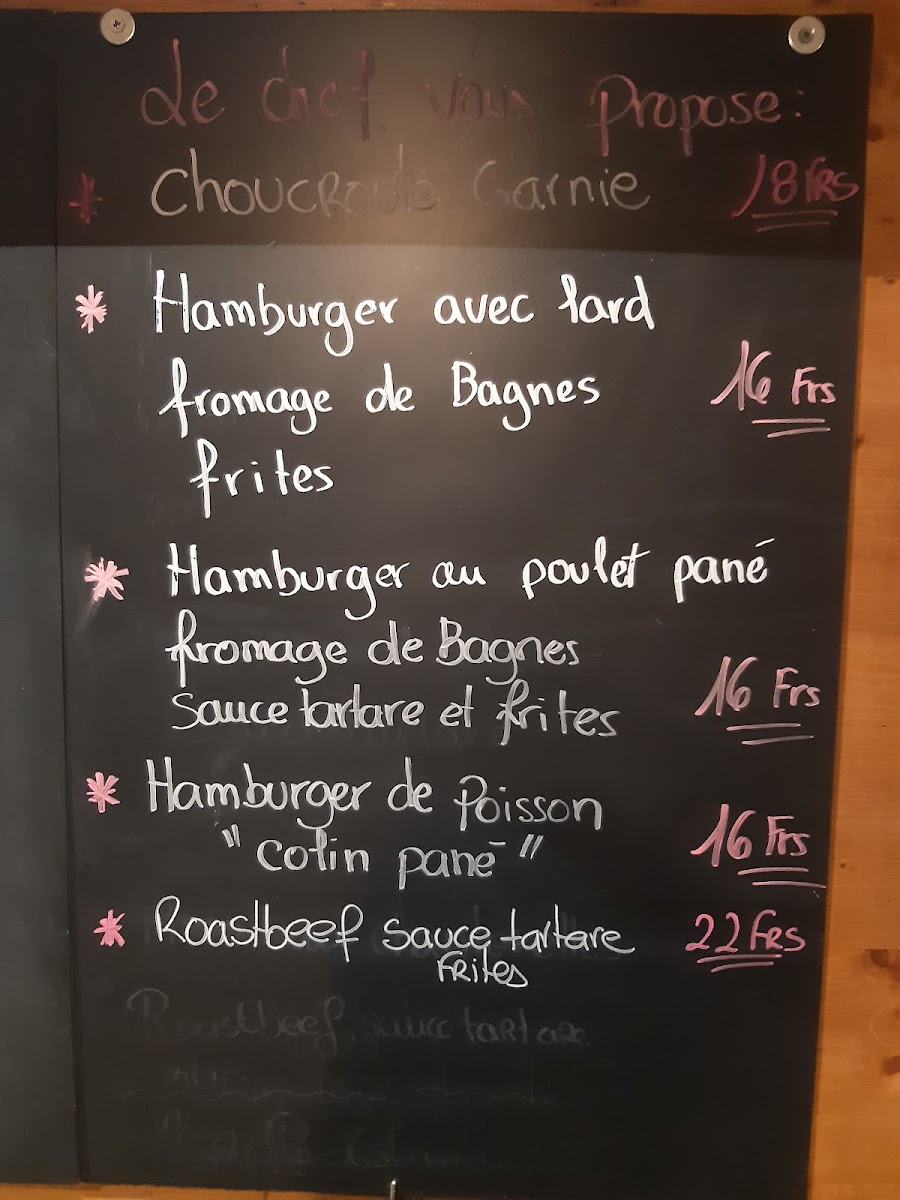 Le chef vous propose:
* Choucroute Garnie 18 Frs
* Hamburger avec lard
fromage de Bagnes 16 Frs
frites
* Hamburger au poulet pané
fromage de Bagnes
sauce tartare et frites 16 Frs
* Hamburger de Poisson
"colin pané" 16 Frs
* Roastbeef sauce tartare 22 Frs
Frites
Roastbeef, sauce tartare